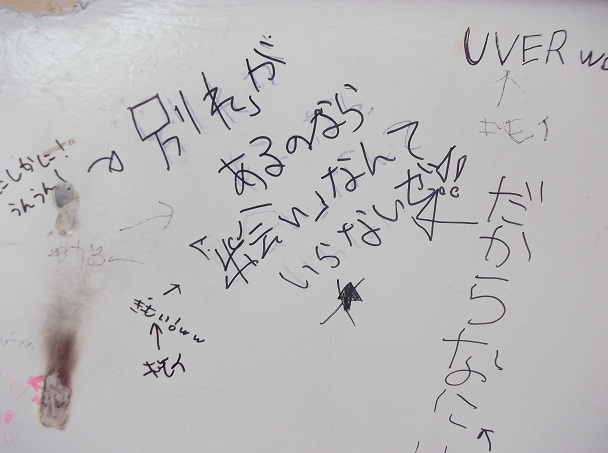 UVER wo
キモイ
別れが
あるのなら
「出会い」なんて
いらないぜ!!
だからなに
たしかに!
うんうん!
きもい!ww
キモイ